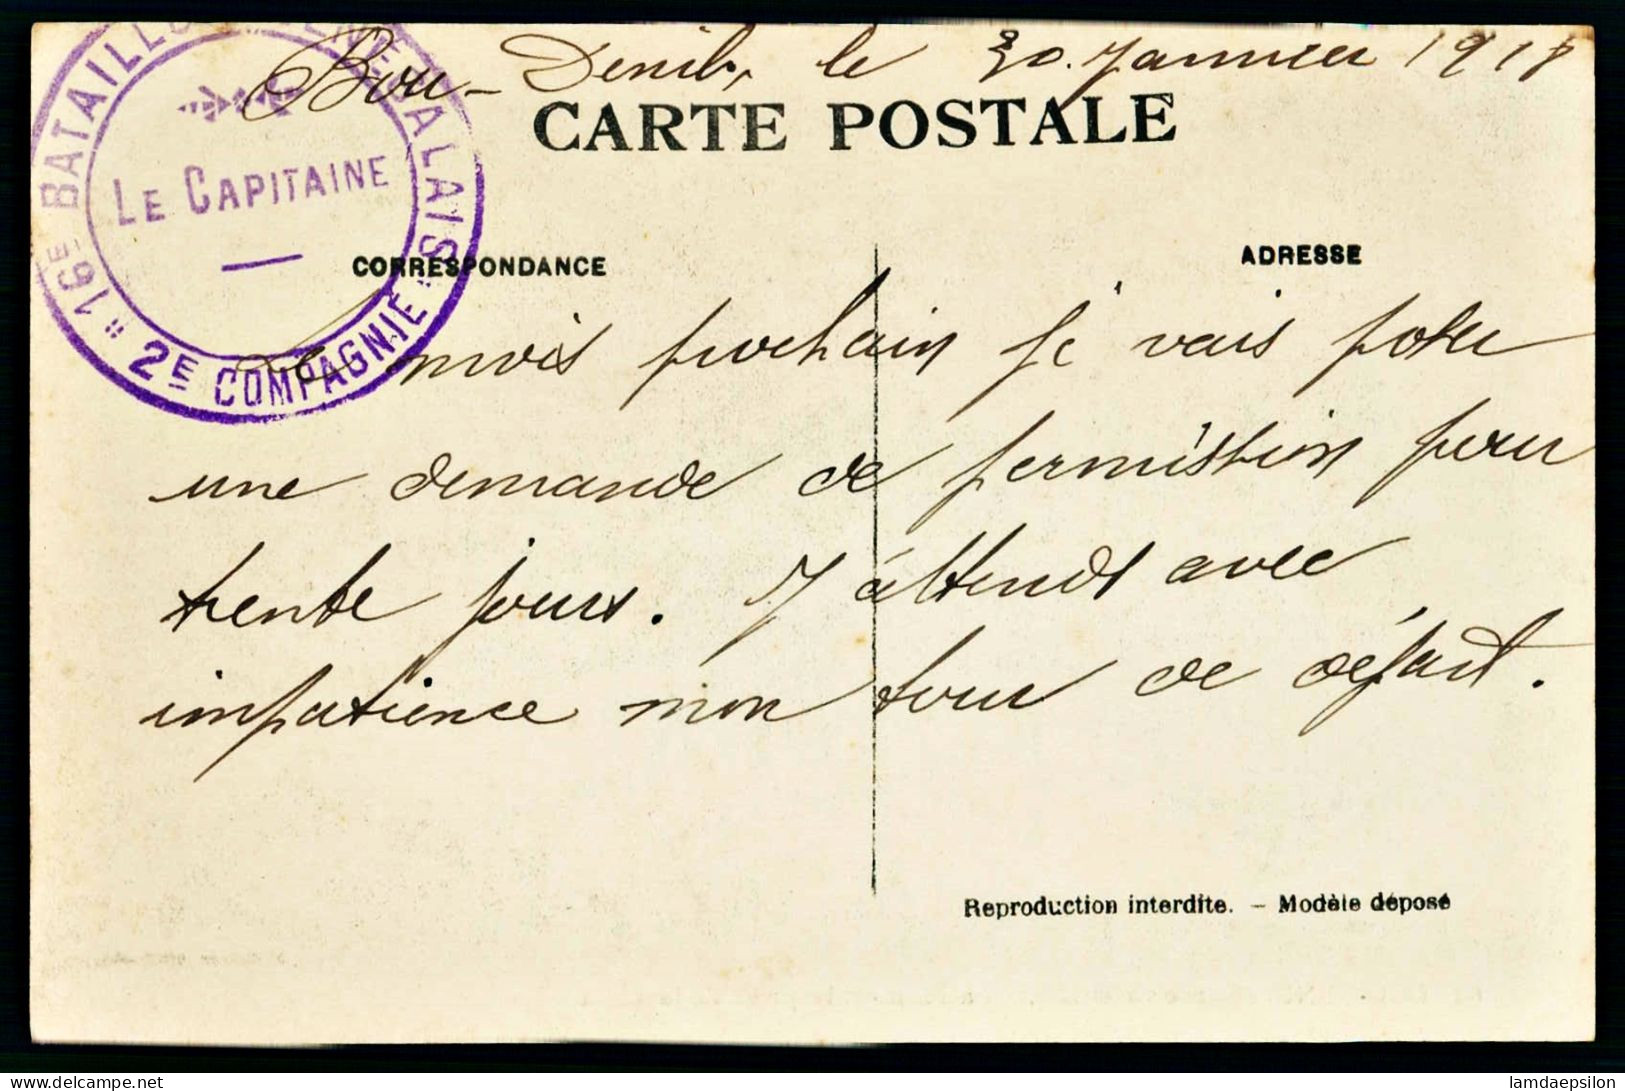 Bou-Denib, le 30 Janvier 1918
CARTE POSTALE
16E BATAILLON SÉNÉGALAIS
LE CAPITAINE
" 2E COMPAGNIE "
CORRESPONDANCE
ADRESSE
Le mois prochain je vais poser
une demande de permission pour
trente jours. J'attends avec
impatience mon tour de départ.
Reproduction interdite. – Modèle déposé
lamdaepsilon